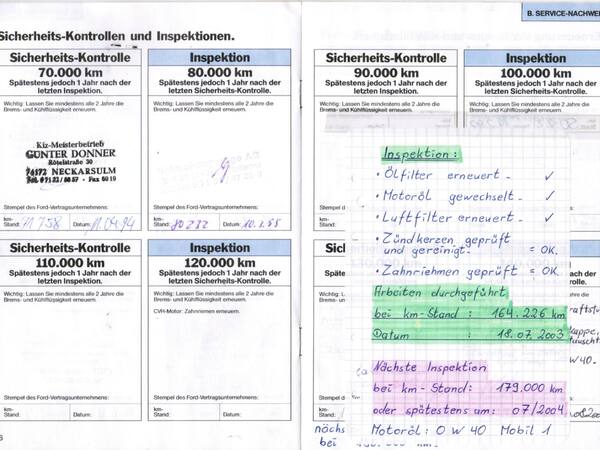 Sicherheits-Kontrollen und Inspektionen.
B. SERVICE-NACHWE
Sicherheits-Kontrolle
70.000 km
Spätestens jedoch 1 Jahr nach der
letzten Inspektion.
Wichtig: Lassen Sie mindestens alle 2 Jahre die
Brems- und Kühlflüssigkeit erneuern.
Kfz-Meisterbetrieb
GÜNTER DONNER
Rötelstraße 30
74172 NECKARSULM
Stempel des Ford-Vertragsunternehmens:
km-
Stand: 71 758 Datum: 11.04.94
Inspektion
80.000 km
Spätestens jedoch 1 Jahr nach der
letzten Sicherheits-Kontrolle.
Wichtig: Lassen Sie mindestens alle 2 Jahre die
Brems- und Kühlflüssigkeit erneuern.
Stempel des Ford-Vertragsunternehmens:
km-
Stand: 80 232 Datum: 10.1.95
Sicherheits-Kontrolle
90.000 km
Spätestens jedoch 1 Jahr nach der
letzten Inspektion.
Wichtig: Lassen Sie mindestens alle 2 Jahre die
Brems- und Kühlflüssigkeit erneuern.
Inspektion
100.000 km
Spätestens jedoch 1 Jahr nach der
letzten Sicherheits-Kontrolle.
Wichtig: Lassen Sie mindestens alle 2 Jahre die
Brems- und Kühlflüssigkeit erneuern.
Sicherheits-Kontrolle
110.000 km
Spätestens jedoch 1 Jahr nach der
letzten Inspektion.
Wichtig: Lassen Sie mindestens alle 2 Jahre die
Brems- und Kühlflüssigkeit erneuern.
Stempel des Ford-Vertragsunternehmens:
km-
Stand: Datum:
Inspektion
120.000 km
Spätestens jedoch 1 Jahr nach der
letzten Sicherheits-Kontrolle.
Wichtig: Lassen Sie mindestens alle 2 Jahre die
Brems- und Kühlflüssigkeit erneuern.
CVH-Motor: Zahnriemen erneuern.
Stempel des Ford-Vertragsunternehmens:
km-
Stand: Datum:
Inspektion:
• Ölfilter erneuert - ✓
• Motoröl gewechselt - ✓
• Luftfilter erneuert - ✓
• Zündkerzen geprüft
und gereinigt. = OK.
• Zahnriemen geprüft = OK.
Arbeiten durchgeführt
bei km-Stand: 164.226 km
Datum : 18.07.2003
Nächste Inspektion
bei km-Stand: 179.000 km
oder spätestens am: 07/2004
Motoröl: 0 W 40 Mobil 1
nach der
W40-
nächs
bei